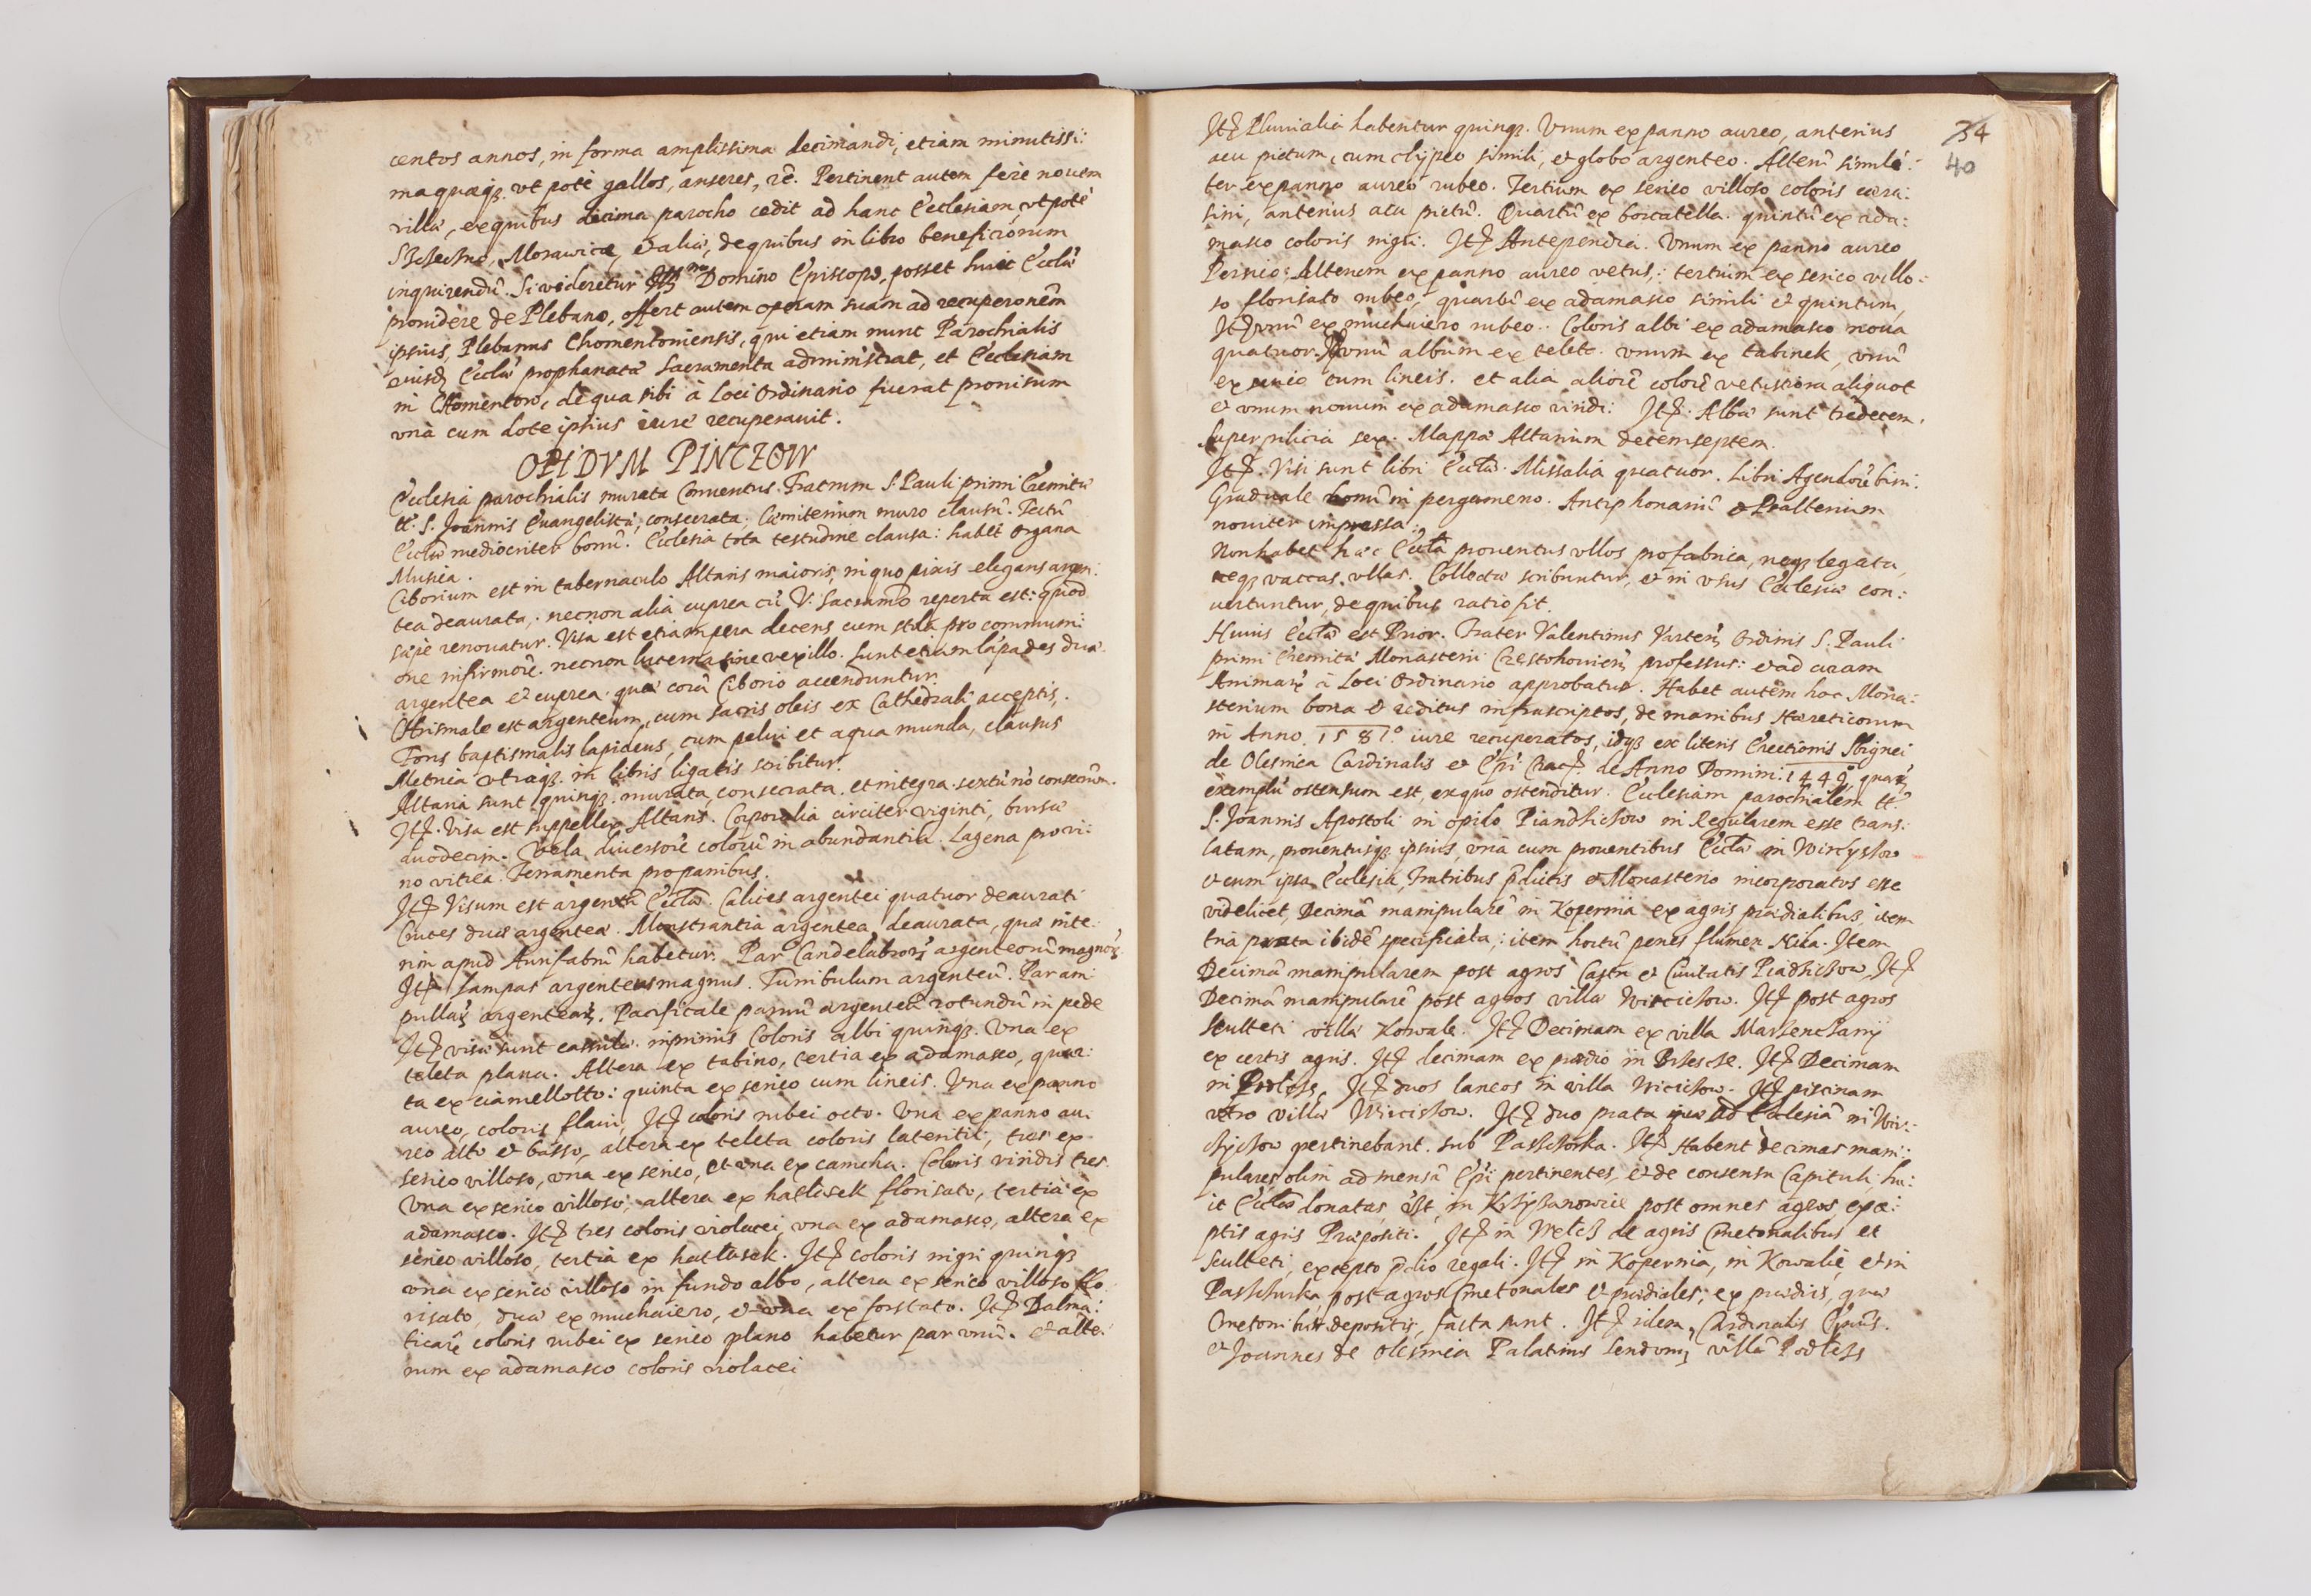 centos annos, in forma amplissima decimandi, etiam minutissi:
maquæqȝ vt potè gallos, anseres, &c. Pertinent autem ferè nouem
villæ, ex quibus decima parocho cedit ad hanc Ecclesiam, vt potè
Morawica, et aliæ, de quibus in libro beneficiorum
inquirendũ. Si videretur Domino Episcopo, posset huic Eccłæ
prouidere de Plebano, offert autem operam suam ad recuperonẽm
ipsius, Plebanus Chomentouiensis, qui etiam nunc Parochialis
eiusdȝ Eccłæ prophanatæ Sacramenta administrat, et Ecclesiam
in Chomentow, de qua sibi à Loci Ordinario fuerat prouisum
vnà cum dote ipsius iure recuperauit.
OPIDVM PINCZOW
Ecclesia parochialis murata Conuentus Fratrum S. Pauli primi Eremitæ
tt. S. Joannis Euangelistæ, consecrata. Cæmiterium muro clausũ. Tectũ
Eccłæ mediocriter bonũ. Ecclesia tota testudine clausa: habet Organa
Musica.
Ciborium est in tabernaculo Altaris maioris, in quo pixis elegans argen:
tea deaurata, necnon alia cuprea cũ V. Sacramẽo reperta est: quod
sæpè renouatur. Visa est etiam pera decens cum stola pro communi:
one infirmorũ. necnon laterna sine vexillo. sunt etiam lãpades duæ
argentea et cuprea. quæ corã Ciborio accenduntur.
Chrismale est argenteum, cum sacris oleis ex Cathedrali acceptis,
Fons baptismalis lapideus, cum pelui et aqua munda, clausus
Metrica vtraqȝ in libris ligatis scribitur.
Altaria sunt quinqȝ murata, consecrata. et integra. sextũ nõ consecrũm.
Itȝ. Visa est suppellex Altaris. Corporalia circiter viginti, bursæ
duodecim. Vela diuersorũ colorũ in abundantia. Lagena pro vi:
no vitrea. Ferramenta pro panibus.
Itȝ Visum est argentũ Eccłæ. Calices argentei quatuor deaurati
Cruces duæ argenteæ. Monstrantia argentea, deaurata, quæ inte:
rim apud Aurifabrũ habetur. Par Candelabrorȝ argenteorũ magnorȝ
Itȝ Lampas argenteus magnus. Turribulum argenteũ. Par am:
pullarȝ argentearȝ. Pacificale paruũ argenteũ rotundũ in pede
Itȝ visæ sunt casulæ. inprimis Coloris albi quinqȝ. Vna ex
teleta plana. Altera ex tabino, tertia ex adamasco, quar:
ta ex ciamellotto: quinta ex serico cum lineis. Vna ex panno
aureo, coloris flaui, Itȝ coloris rubei octo. Vna ex panno au:
reo alto et basso, altera ex teleta coloris lateritii, tres ex
serico villoso, vna ex serico, et vna ex camcha. Coloris viridis tres.
Vna ex serico villoso, altera ex hatłasek florisato, tertia ex
adamasco. Itȝ tres coloris violacei, vna ex adamasco, altera ex
serico villoso, tertia ex hatłasek. Itȝ coloris nigri quinqȝ
vna ex serico villoso in fundo albo, altera ex serico villoso flo
risato, duæ ex muchaiero, et vna ex forstato. Itȝ Dalma:
ticarũ coloris rubei ex serico plano habetur par vnũ. et alte:
rum ex adamasco coloris violacei
34
40
Itȝ Pluuialia habentur quinqȝ. Vnum ex panno aureo, anterius
acu pictum, cum clypeo simili, et globo argenteo. Alterũ simili:
ter ex panno aureo rubeo. Tertium ex serico villoso coloris cera:
sini, anterius acu pictũ. Quartũ ex borcatella. quintũ ex ada:
masco coloris nigri. Itȝ Antependia. Vnum ex panno aureo
Persico: Alterum ex panno aureo vetus,: tertium ex serico villo:
so florisato rubeo, quartũ ex adamasco simili et quintum,
Itȝ vnũ ex muchaiero rubeo. Coloris albi ex adamasco noua
quatuor. Itȝ vnũ album ex teleto. vnum ex tabinek, vnũ
ex serico cum lineis. et alia aliorũ colorũ vetustiora aliquot
et vnum nouum ex adamasco viridi: Itȝ. Albæ sunt tredecem.
Superpilicia sex. Mappæ Altarium decemseptem.
Itȝ. Visi sunt libri Eccłæ. Missalia quatuor. Libri Agendorũ bini:
Graduale bonũ in pergameno. Antiphonariũ et Psalterium
nouiter impressa.
Non habet hæc Eccła prouentus vllos pro fabrica, neqȝ legata,
neqȝ vaccas vllas. Collectæ scribuntur, et in vsus Ecclesiæ con:
uertuntur, de quibus ratio fit.
Huius Eccłæ est Prior. Frater Valentinus Ordinis S. Pauli
primi Eremitæ Monasterii Czestochouienȝ professus: et ad curam
Animarȝ à Loci Ordinario approbatur. Habet autem hoc Mona:
sterium bona et reditus infrascriptos, de manibus Hæreticorum
in Anno 1587º iure recuperatos, idqȝ ex literis Erectionis Sbignei
de Olesnica Cardinalis et Epi Cracȝ. de Anno Domini: 1449, quarȝ
exemplũ ostensum est, ex quo ostenditur. Ecclesiam parochialem tt
S. Joannis Apostoli in opido Piandzichow in Regularem esse trans:
latam, prouentusqȝ ipsius, vnà cum prouentibus Eccłæ in
et cum ipsa Ecclesia, Fratribus p̃dictis et Monasterio incorporatos esse
videlicet, Decimã manipularẽ in Kopernia ex agris prædialibus item
tria prata ibidẽ specificata,: item hortũ penes flumen Nida. Item
Decimã manipularem post agros Castri et Ciuitatis Piadzichow, Itȝ
Decimã manipularẽ post agros villæ Itȝ post agros
Sculteti villæ Kowale. Itȝ Decimam ex villa
ex certis agris. Itȝ decimam ex prædio in Itȝ Decimam
in Itȝ duos laneos in villa Itȝ piscinam
retro villã Itȝ duo prata quæ ad Ecclesiã in
pertinebant. sub Itȝ Habent decimas mani:
pulares, olim ad mensã Epi pertinentes, et de consensu Capituli, hu:
ic Eccłæ donatas, vt, in post omnes agros exce:
ptis agris Præpositi. Itȝ in Wełcz de agris Cmetonalibus et
Sculteti, excepto p̃dio regali. Itȝ in Kopernia, in Kowalie, et in
post agros Cmetonales et prædiales, ex prædiis, quæ
Cmetonibus depositis, facta sunt. Itȝ idem, Cardinalis Epus.
et Joannes de Olesnica Palatinus Sendomȝ villã